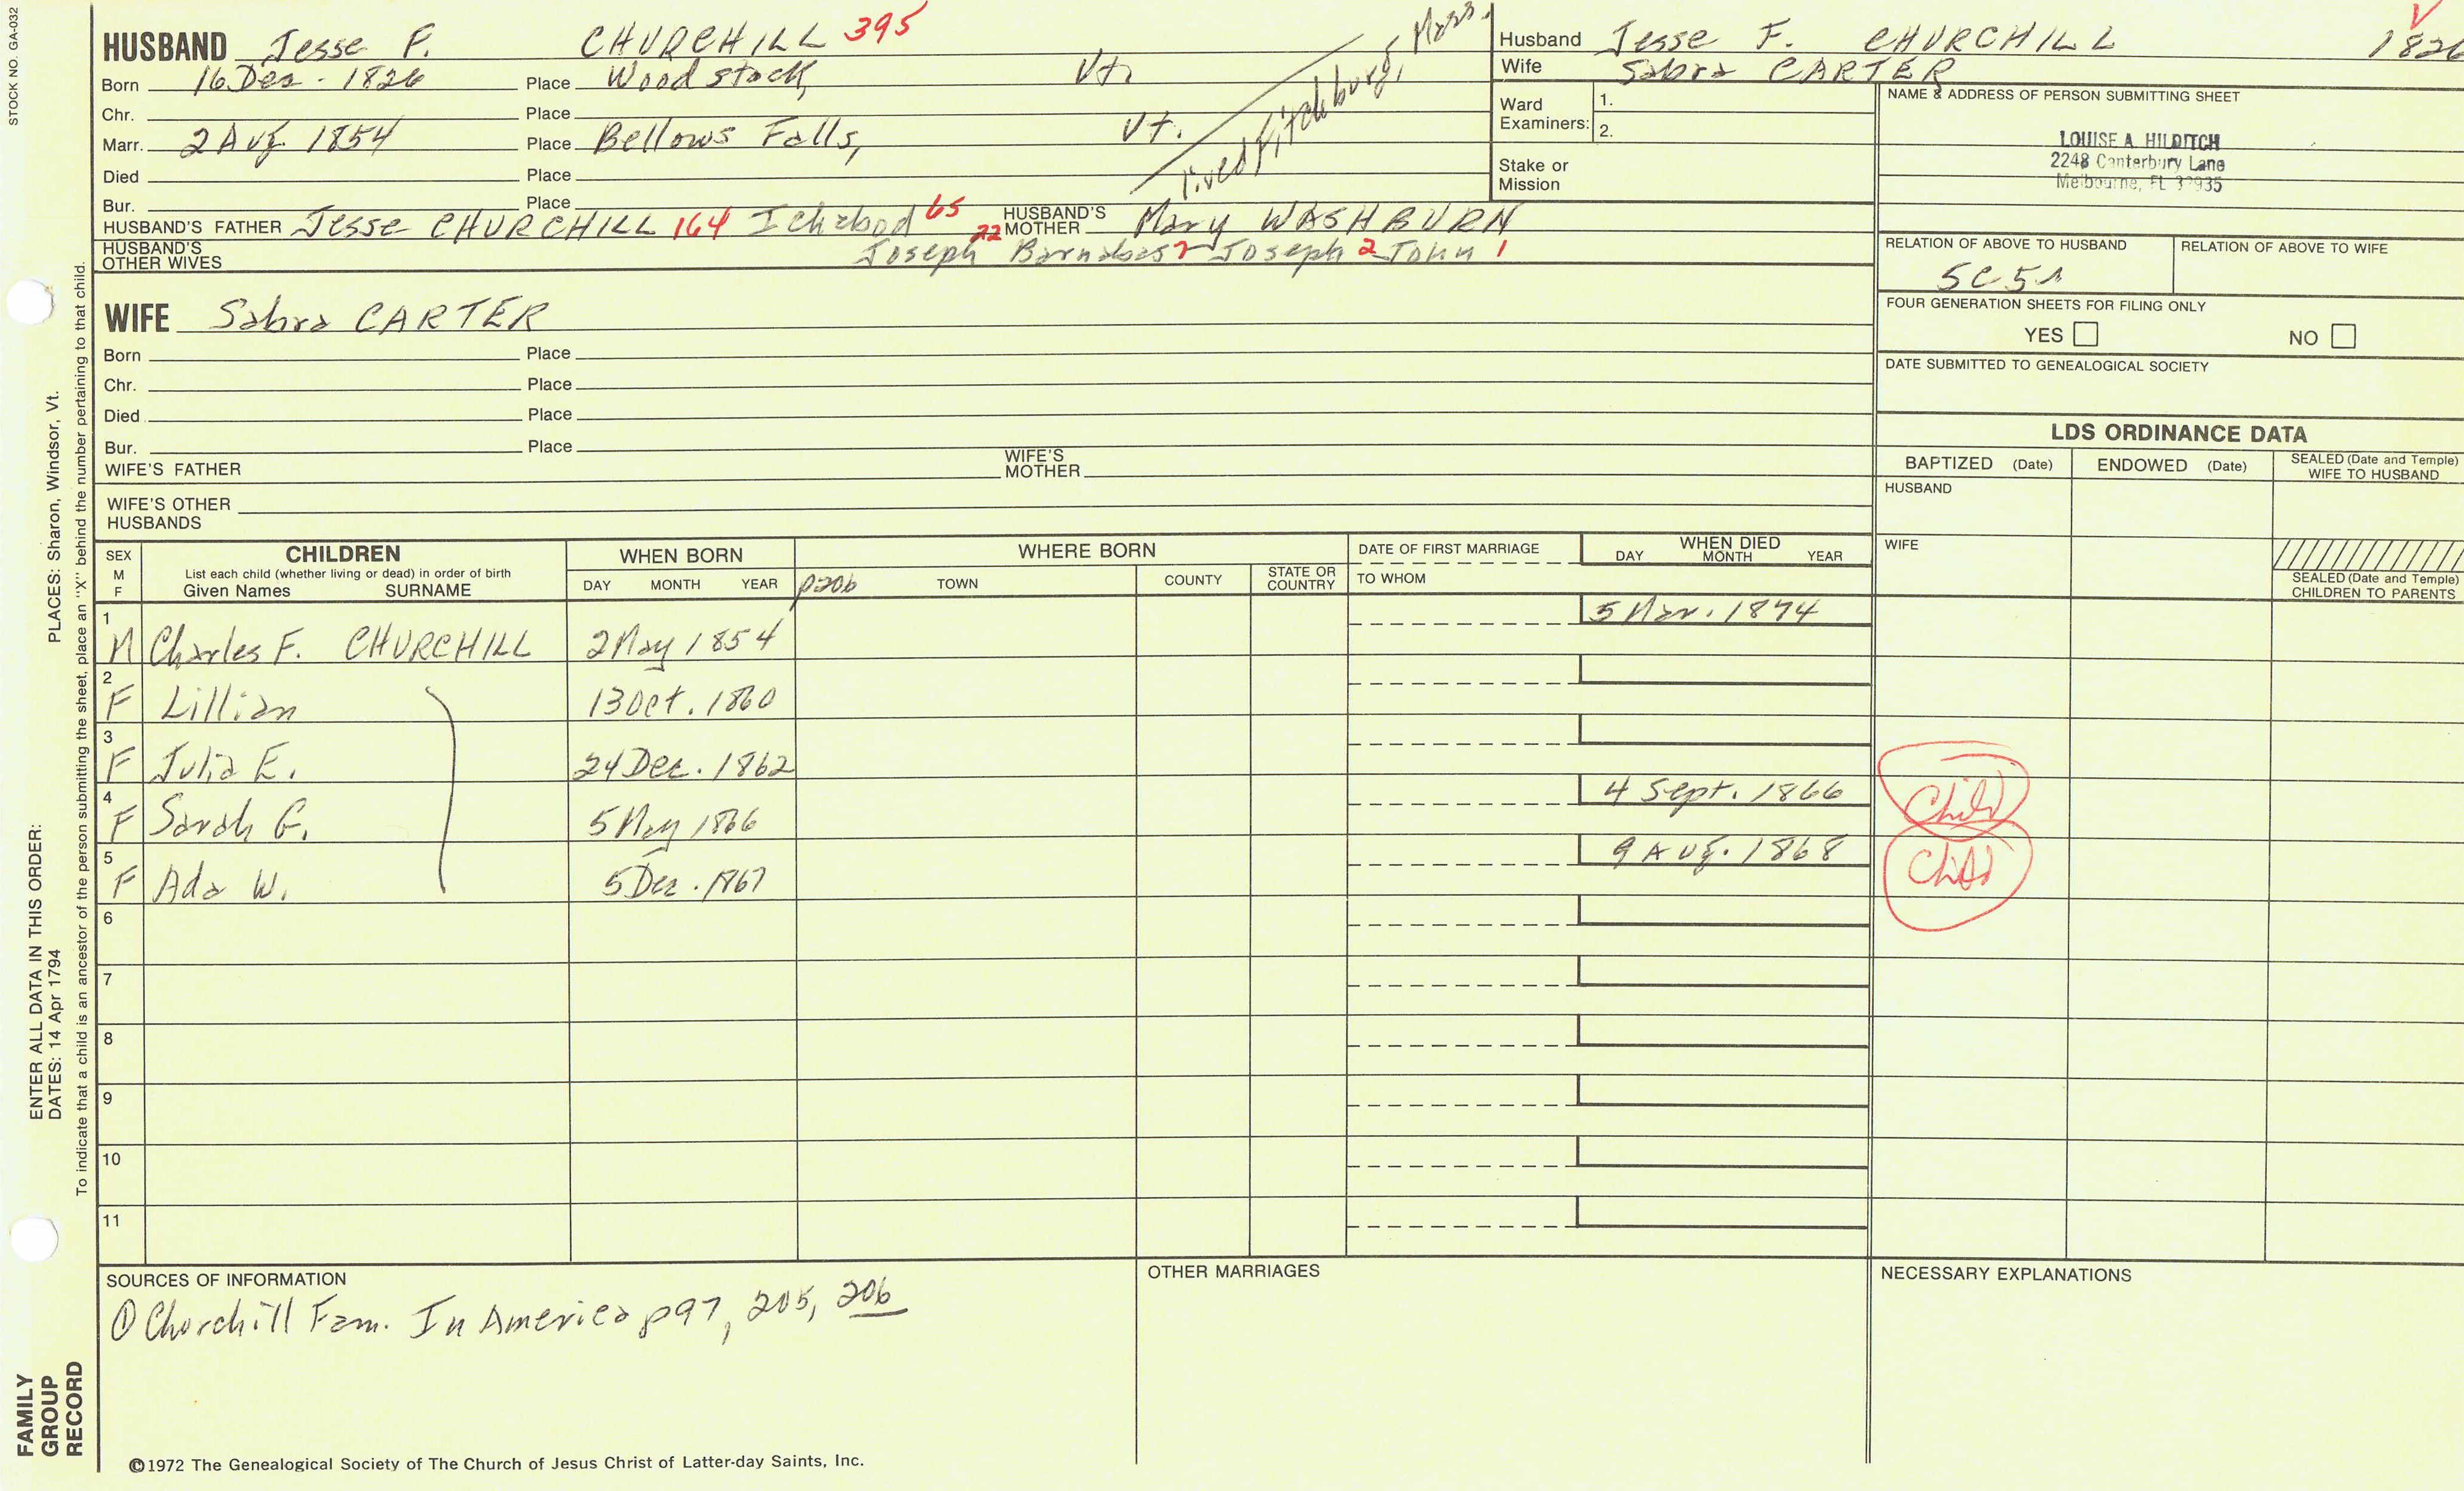 STOCK NO. GA-032
HUSBAND Jesse F. CHURCHILL 395
Born 16 Dec. 1826 Place Woodstock, Vt.
Chr. Place
Marr. 2 Aug. 1854 Place Bellows Falls, Vt.
Died Place
Bur. Place
lived Fitchburg, Mass.
HUSBAND'S FATHER Jesse CHURCHILL 164 Ichabod 65 HUSBAND'S MOTHER Mary WASHBURN
HUSBAND'S OTHER WIVES Joseph 22 Barnabas 7 Joseph 2 John 1
WIFE Sabra CARTER
Born Place
Chr. Place
Died Place
Bur. Place
WIFE'S FATHER WIFE'S MOTHER
WIFE'S OTHER HUSBANDS
Husband Jesse F. CHURCHILL 1826
Wife Sabra CARTER
Ward Examiners: 1.
2.
Stake or Mission
NAME & ADDRESS OF PERSON SUBMITTING SHEET
LOUISE A. HILDITCH
2248 Canterbury Lane
Melbourne, FL 32935
RELATION OF ABOVE TO HUSBAND RELATION OF ABOVE TO WIFE
5C5
FOUR GENERATION SHEETS FOR FILING ONLY
YES NO
DATE SUBMITTED TO GENEALOGICAL SOCIETY
LDS ORDINANCE DATA
BAPTIZED (Date) ENDOWED (Date) SEALED (Date and Temple) WIFE TO HUSBAND
HUSBAND
WIFE
SEALED (Date and Temple) CHILDREN TO PARENTS
SEX M F
CHILDREN
List each child (whether living or dead) in order of birth
Given Names SURNAME
WHEN BORN
DAY MONTH YEAR
WHERE BORN
p206 TOWN COUNTY STATE OR COUNTRY
DATE OF FIRST MARRIAGE
TO WHOM
WHEN DIED
DAY MONTH YEAR
1 M Charles F. CHURCHILL 2 May 1854 5 Mar. 1874
2 F Lillian 13 Oct. 1860
3 F Julia E. 24 Dec. 1862
4 F Sarah G. 5 May 1866 4 Sept. 1866 Child
5 F Ada W. 5 Dec. 1867 9 Aug. 1868 Child
6
7
8
9
10
11
SOURCES OF INFORMATION
① Churchill Fam. In America p97, 205, 206
OTHER MARRIAGES
NECESSARY EXPLANATIONS
©1972 The Genealogical Society of The Church of Jesus Christ of Latter-day Saints, Inc.
ENTER ALL DATA IN THIS ORDER:
DATES: 14 Apr 1794
PLACES: Sharon, Windsor, Vt.
To indicate that a child is an ancestor of the person submitting the sheet, place an "X" behind the number pertaining to that child.
FAMILY GROUP RECORD